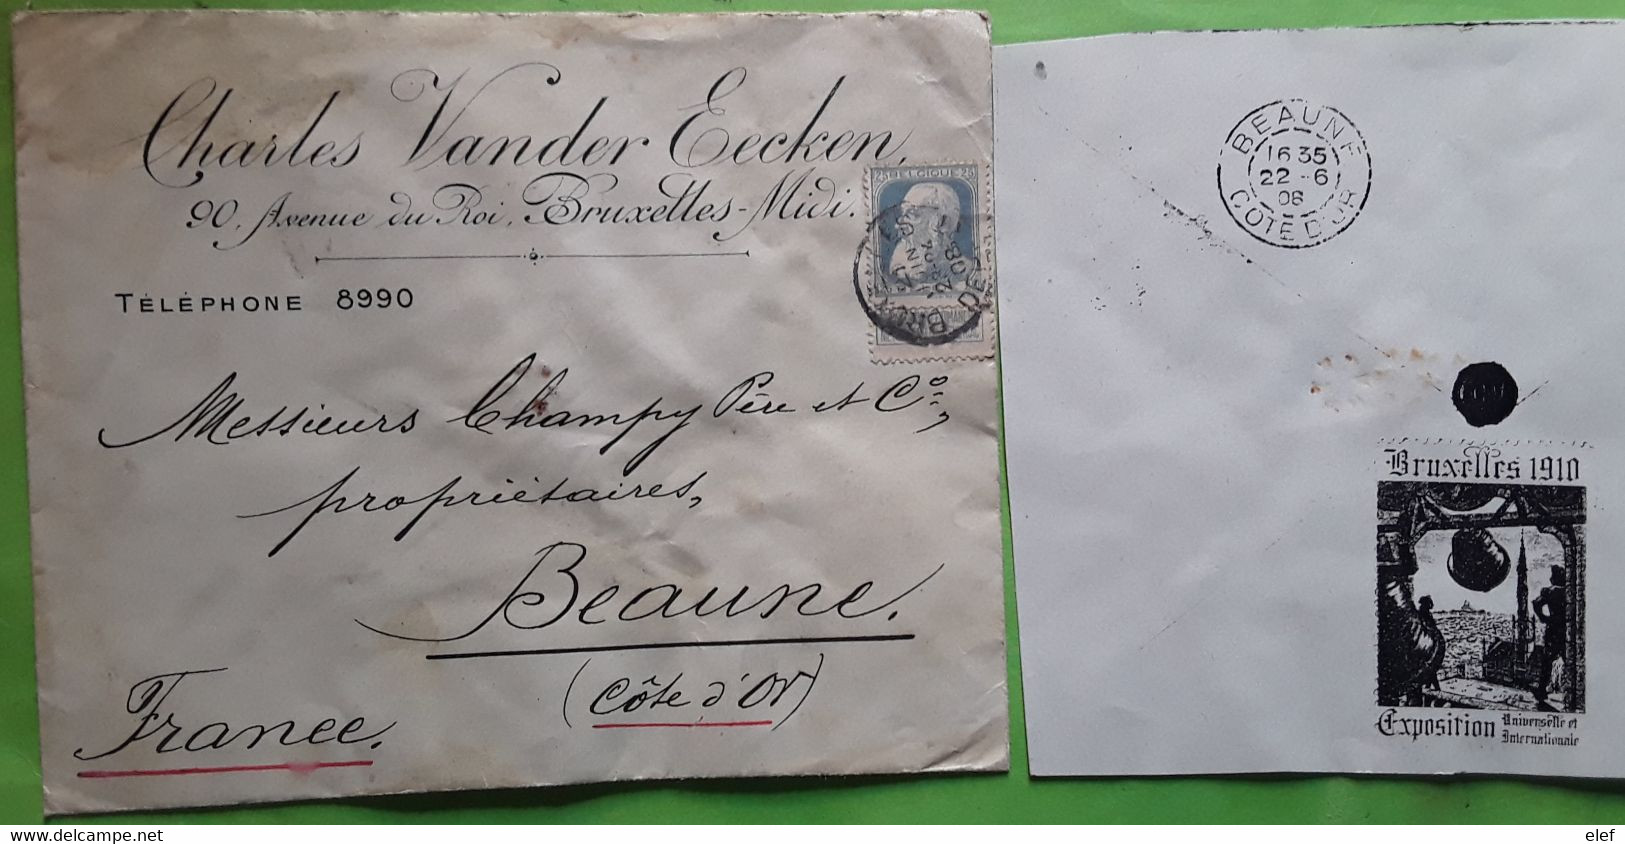 Charles Vander Eecken,
90, Avenue du Roi, Bruxelles-Midi.
TÉLÉPHONE 8990
25 BELGIQUE 25
Messieurs Champy Père et Cº,
propriétaires,
Beaune.
(Côte d'Or)
France.
BEAUNE
16 35
22 - 6
08
COTE D'OR
Bruxelles 1910
Exposition Universelle et
Internationale
www.delcampe.net
elef